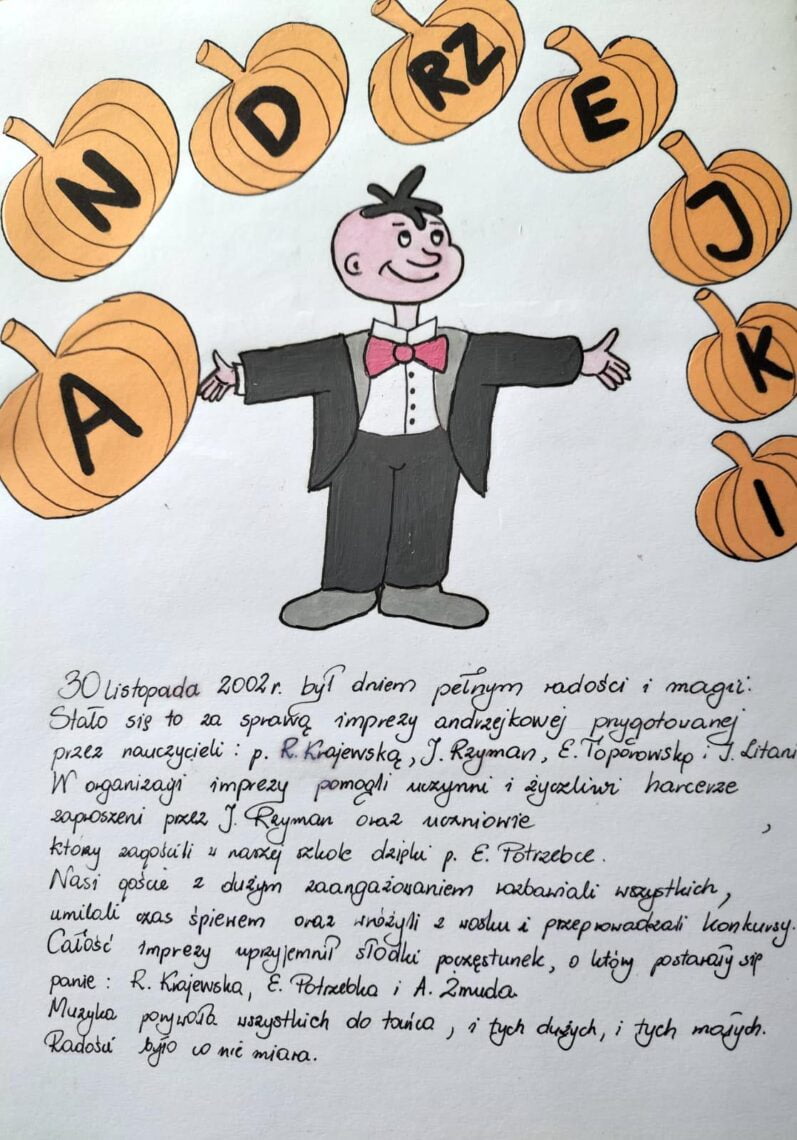 ANDRZEJKI
30 listopada 2002r. był dniem pełnym radości i magii.
Stało się to za sprawą imprezy andrzejkowej przygotowanej
przez nauczycieli: p. R. Krajewską, J. Rzyman, E. Toporowską i J. Litani
W organizacji imprezy pomogli uczynni i życzliwi harcerze
zaproszeni przez J. Rzyman oraz uczniowie ,
który zagościli w naszej szkole dzięki p. E. Potrzebce.
Nasi goście z dużym zaangażowaniem rozbawiali wszystkich,
umilali czas śpiewem oraz wróżyli z wosku i przeprowadzali konkursy.
Całość imprezy uprzyjemnił słodki poczęstunek, o który postarały się
panie: R. Krajewska, E. Potrzebka i A. Żmuda.
Muzyka porywała wszystkich do tańca, i tych dużych, i tych małych.
Radości było co nie miara.